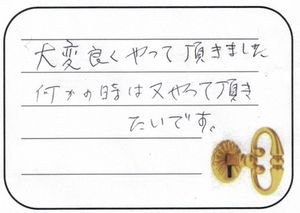 大変良くやって頂きました
何かの時は又やって頂き
たいです。